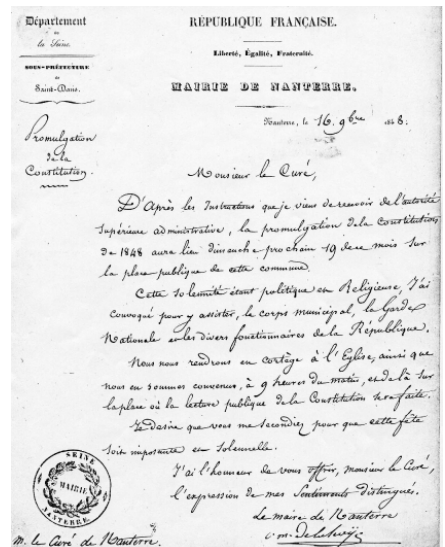 Département
de
la Seine.
SOUS-PRÉFECTURE
de
Saint-Denis.
RÉPUBLIQUE FRANÇAISE.
Liberté, Égalité, Fraternité.
MAIRIE DE NANTERRE.
Nanterre, le 16. 9bre 1848.
Promulgation
de la
Constitution.
Monsieur le Curé,
D'Après les Instructions que je viens de recevoir de l'autorité
supérieure administrative, la promulgation de la Constitution
de 1848 aura lieu dimanche prochain 19 de ce mois sur
la place publique de cette commune.
Cette solemnité étant politique et Religieuse, J'ai
convoqué pour y assister, le corps municipal, la Garde
Nationale et les divers fonctionnaires de la République.
Nous nous rendrons en cortège à l'Eglise, ainsi que
nous en sommes convenus, à 9 heures du matin, et de là sur
la place où la lecture publique de la Constitution sera faite.
Je désire que vous me secondiez pour que cette fête
soit imposante et solennelle.
J'ai l'honneur de vous offrir, monsieur le Curé,
l'expression de mes Sentiments distingués.
Le maire de Nanterre
SEINE
MAIRIE
NANTERRE
m. le Curé de Nanterre.